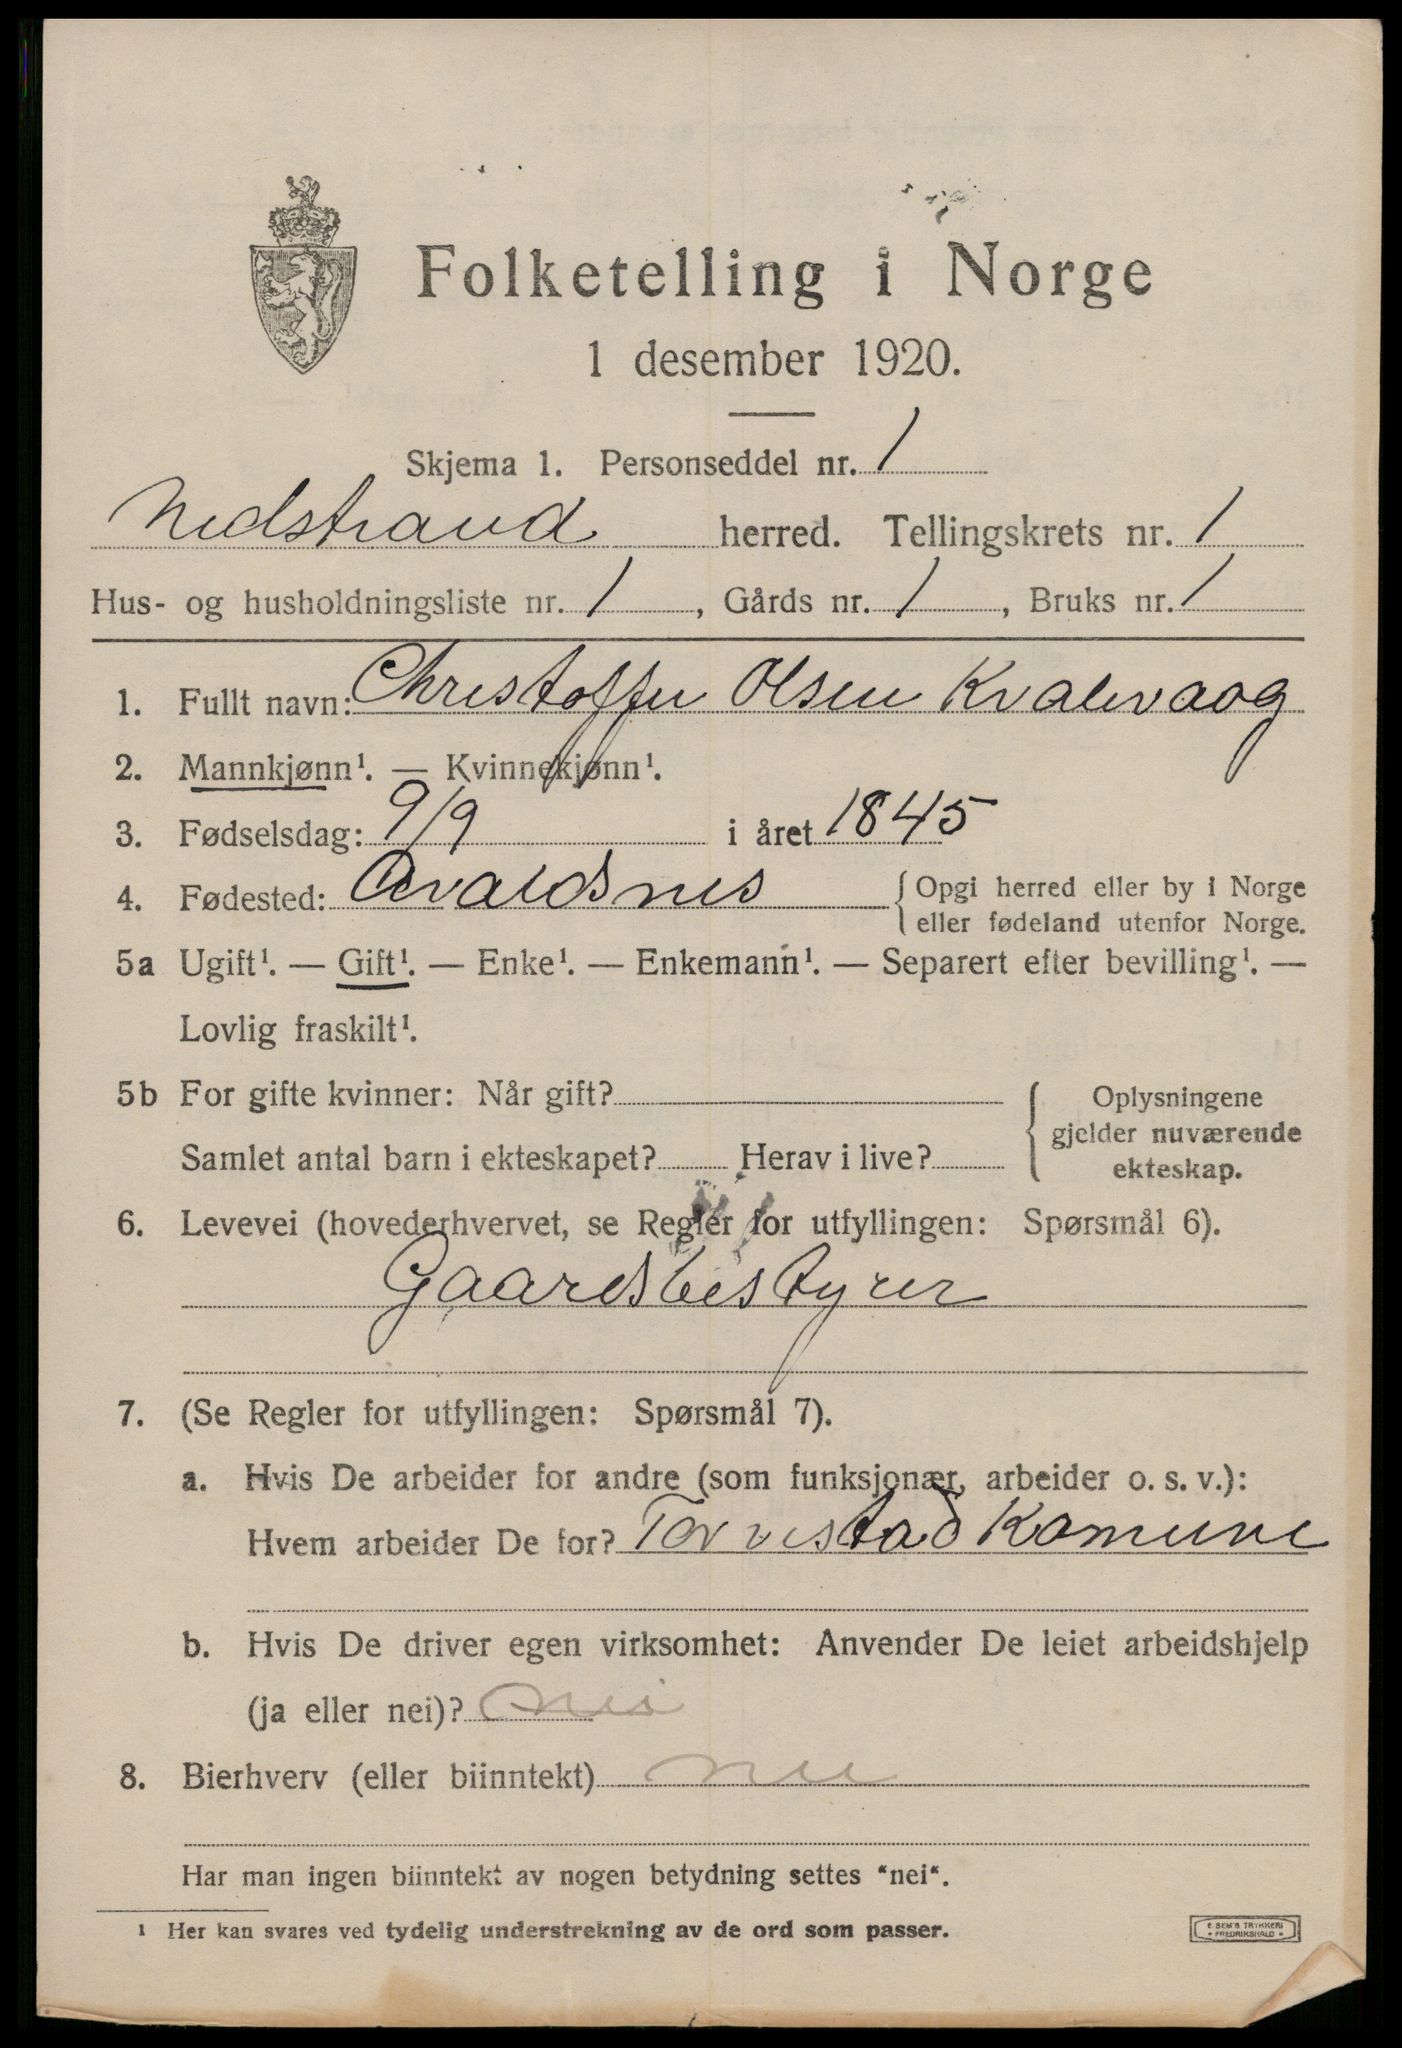 Folketelling i Norge
1 desember 1920.
Skjema 1. Personseddel nr. 1
Nedstrand herred. Tellingskrets nr. 1
Hus- og husholdningsliste nr. 1, Gårds nr. 1, Bruks nr. 1
1. Fullt navn: Christoffer Olsen Kvalevaag
2. Mannkjønn¹. — Kvinnekjønn¹.
3. Fødselsdag: 9/9 i året 1845
4. Fødested: Avaldsnes { Opgi herred eller by i Norge
eller fødeland utenfor Norge.
5a Ugift¹. — Gift¹. — Enke¹. — Enkemann¹. — Separert efter bevilling¹. —
Lovlig fraskilt¹.
5b For gifte kvinner: Når gift?
Samlet antal barn i ekteskapet? Herav i live?
{ Oplysningene
gjelder nuværende
ekteskap.
6. Levevei (hovederhvervet, se Regler for utfyllingen: Spørsmål 6).
Gaardsbestyrer
7. (Se Regler for utfyllingen: Spørsmål 7).
a. Hvis De arbeider for andre (som funksjonær, arbeider o. s. v.):
Hvem arbeider De for? Torvestad Komune
b. Hvis De driver egen virksomhet: Anvender De leiet arbeidshjelp
(ja eller nei)? nei
8. Bierhverv (eller biinntekt) nei
Har man ingen biinntekt av nogen betydning settes "nei".
¹ Her kan svares ved tydelig understrekning av de ord som passer.
E. SEM'S TRYKKERI
* FREDRIKSHALD *